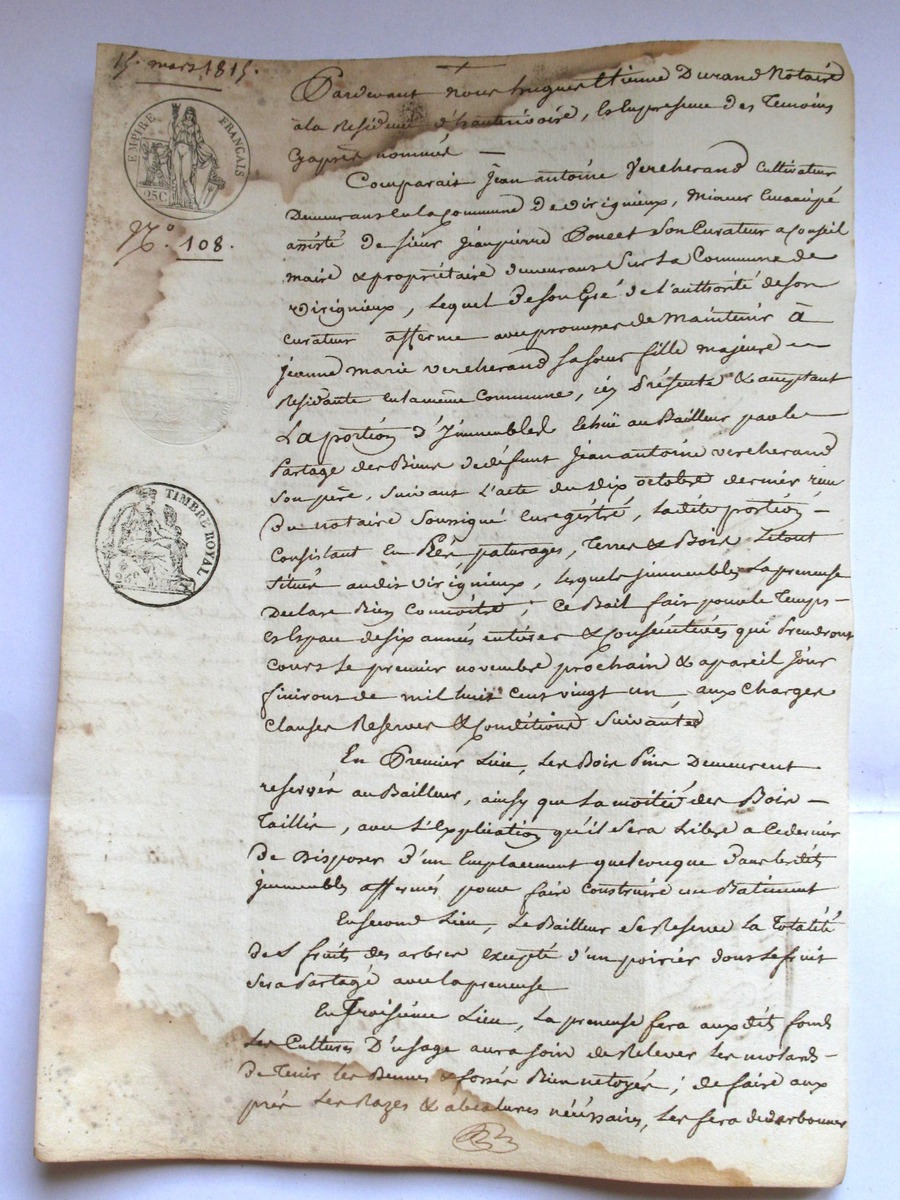 15. mars 1815.
EMPIRE FRANÇAIS
25C
N.o 108.
TIMBRE ROYAL
25C
Pardevant nous hugues Etienne Durand Notaire
à la Residence d'hauterivoire, Et En presence des Temoins
Cyaprès nommés —
Comparait Jean antoine Vercherand Cultivateur
Demeurant En la Commune De virignieux, Mineur Emancipé
assisté de Sieur Jean pierre Poncet Son Curateur a Conseil
maire & propriétaire demeurant Sur La Commune de
virignieux, Lequel De Son Gré de l'authorité de son
Curateur afferme avec promesse de Maintenir à
Jeanne marie vercherand Sa Soeur fille majeure
Residante en la même Commune, icy Présente & acceptant
La portion d'Jmmeubles Echüe au Bailleur par le
Partage des Biens de défunt Jean antoine vercherand
Son père, Suivant L'acte du Dix octobre dernier reçu
Du notaire Soussigné Enregistré, Ladite portion —
Consistant En Prés, paturages, Terres & Bois Le tout
Situé audit virignieux, lesquels jmmeubles La preneuse
Declare Bien Connoitre ; Ce Bail fait pour le Temps —
Et Espace de six années entières & Consécutives qui Prendront
Cours Le premier novembre prochain & a pareil Jour
finiront de mil huit Cent vingt un aux Charges
Clauses Reserves & Conditions Suivantes
En Premier Lieu, Les Bois Pins Demeurent
reservés au Bailleur, ainsy que La moitié des Bois —
Taillis, avec L'Explication qu'il Sera Libre a Ce dernier
De Disposer D'un Emplacement quelconque Dans lesdits
jmmeubles affermés pour faire Construire un Batiment
En Second Lieu, Le Bailleur Se Reserve La Totalité
Des fruits des arbres excepté d'un poirier dont Le fruit
Sera Partagé avec la preneuse
En Troisième Lieu, La preneuse fera auxdits fonds
Les Cultures D'usage aura soin de Relever Les
De Tenir les & fossés Bien netoyés ; de faire aux
prés Les Razes & nécéssaires, Les fera